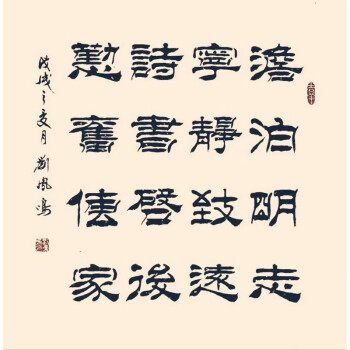 澹泊明志
寧靜致遠
詩書啓後
懃奮傳家
戊戌之夏月 劉鳳鳴